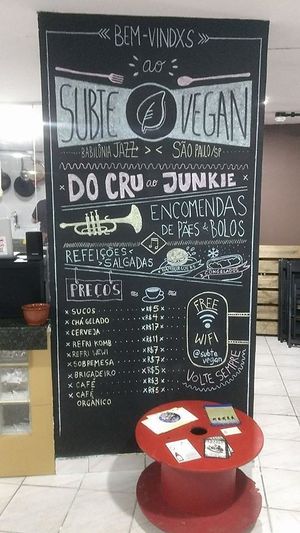 BEM-VINDXS
ao
SUBTE VEGAN
BABILÔNIA JAZZ > < SÃO PALO/SP
DO CRU ao JUNKIE
ENCOMENDAS
DE PÃES & BOLOS
REFEIÇÕES
SALGADAS
HAMBÚRGUERES
& CONGELADOS
PREÇOS
x SUCOS xR$5
x CHÁ GELADO xR$4
x CERVEJA xR$17
x REFRI KOMB xR$11
x REFRI WEWI xR$7
x SOBREMESA xR$7
x BRIGADEIRO xR$3
x CAFÉ xR$3
x CAFÉ ORGÂNICO xR$3
FREE
WIFI
@subte
vegan
VOLTE SEMPRE